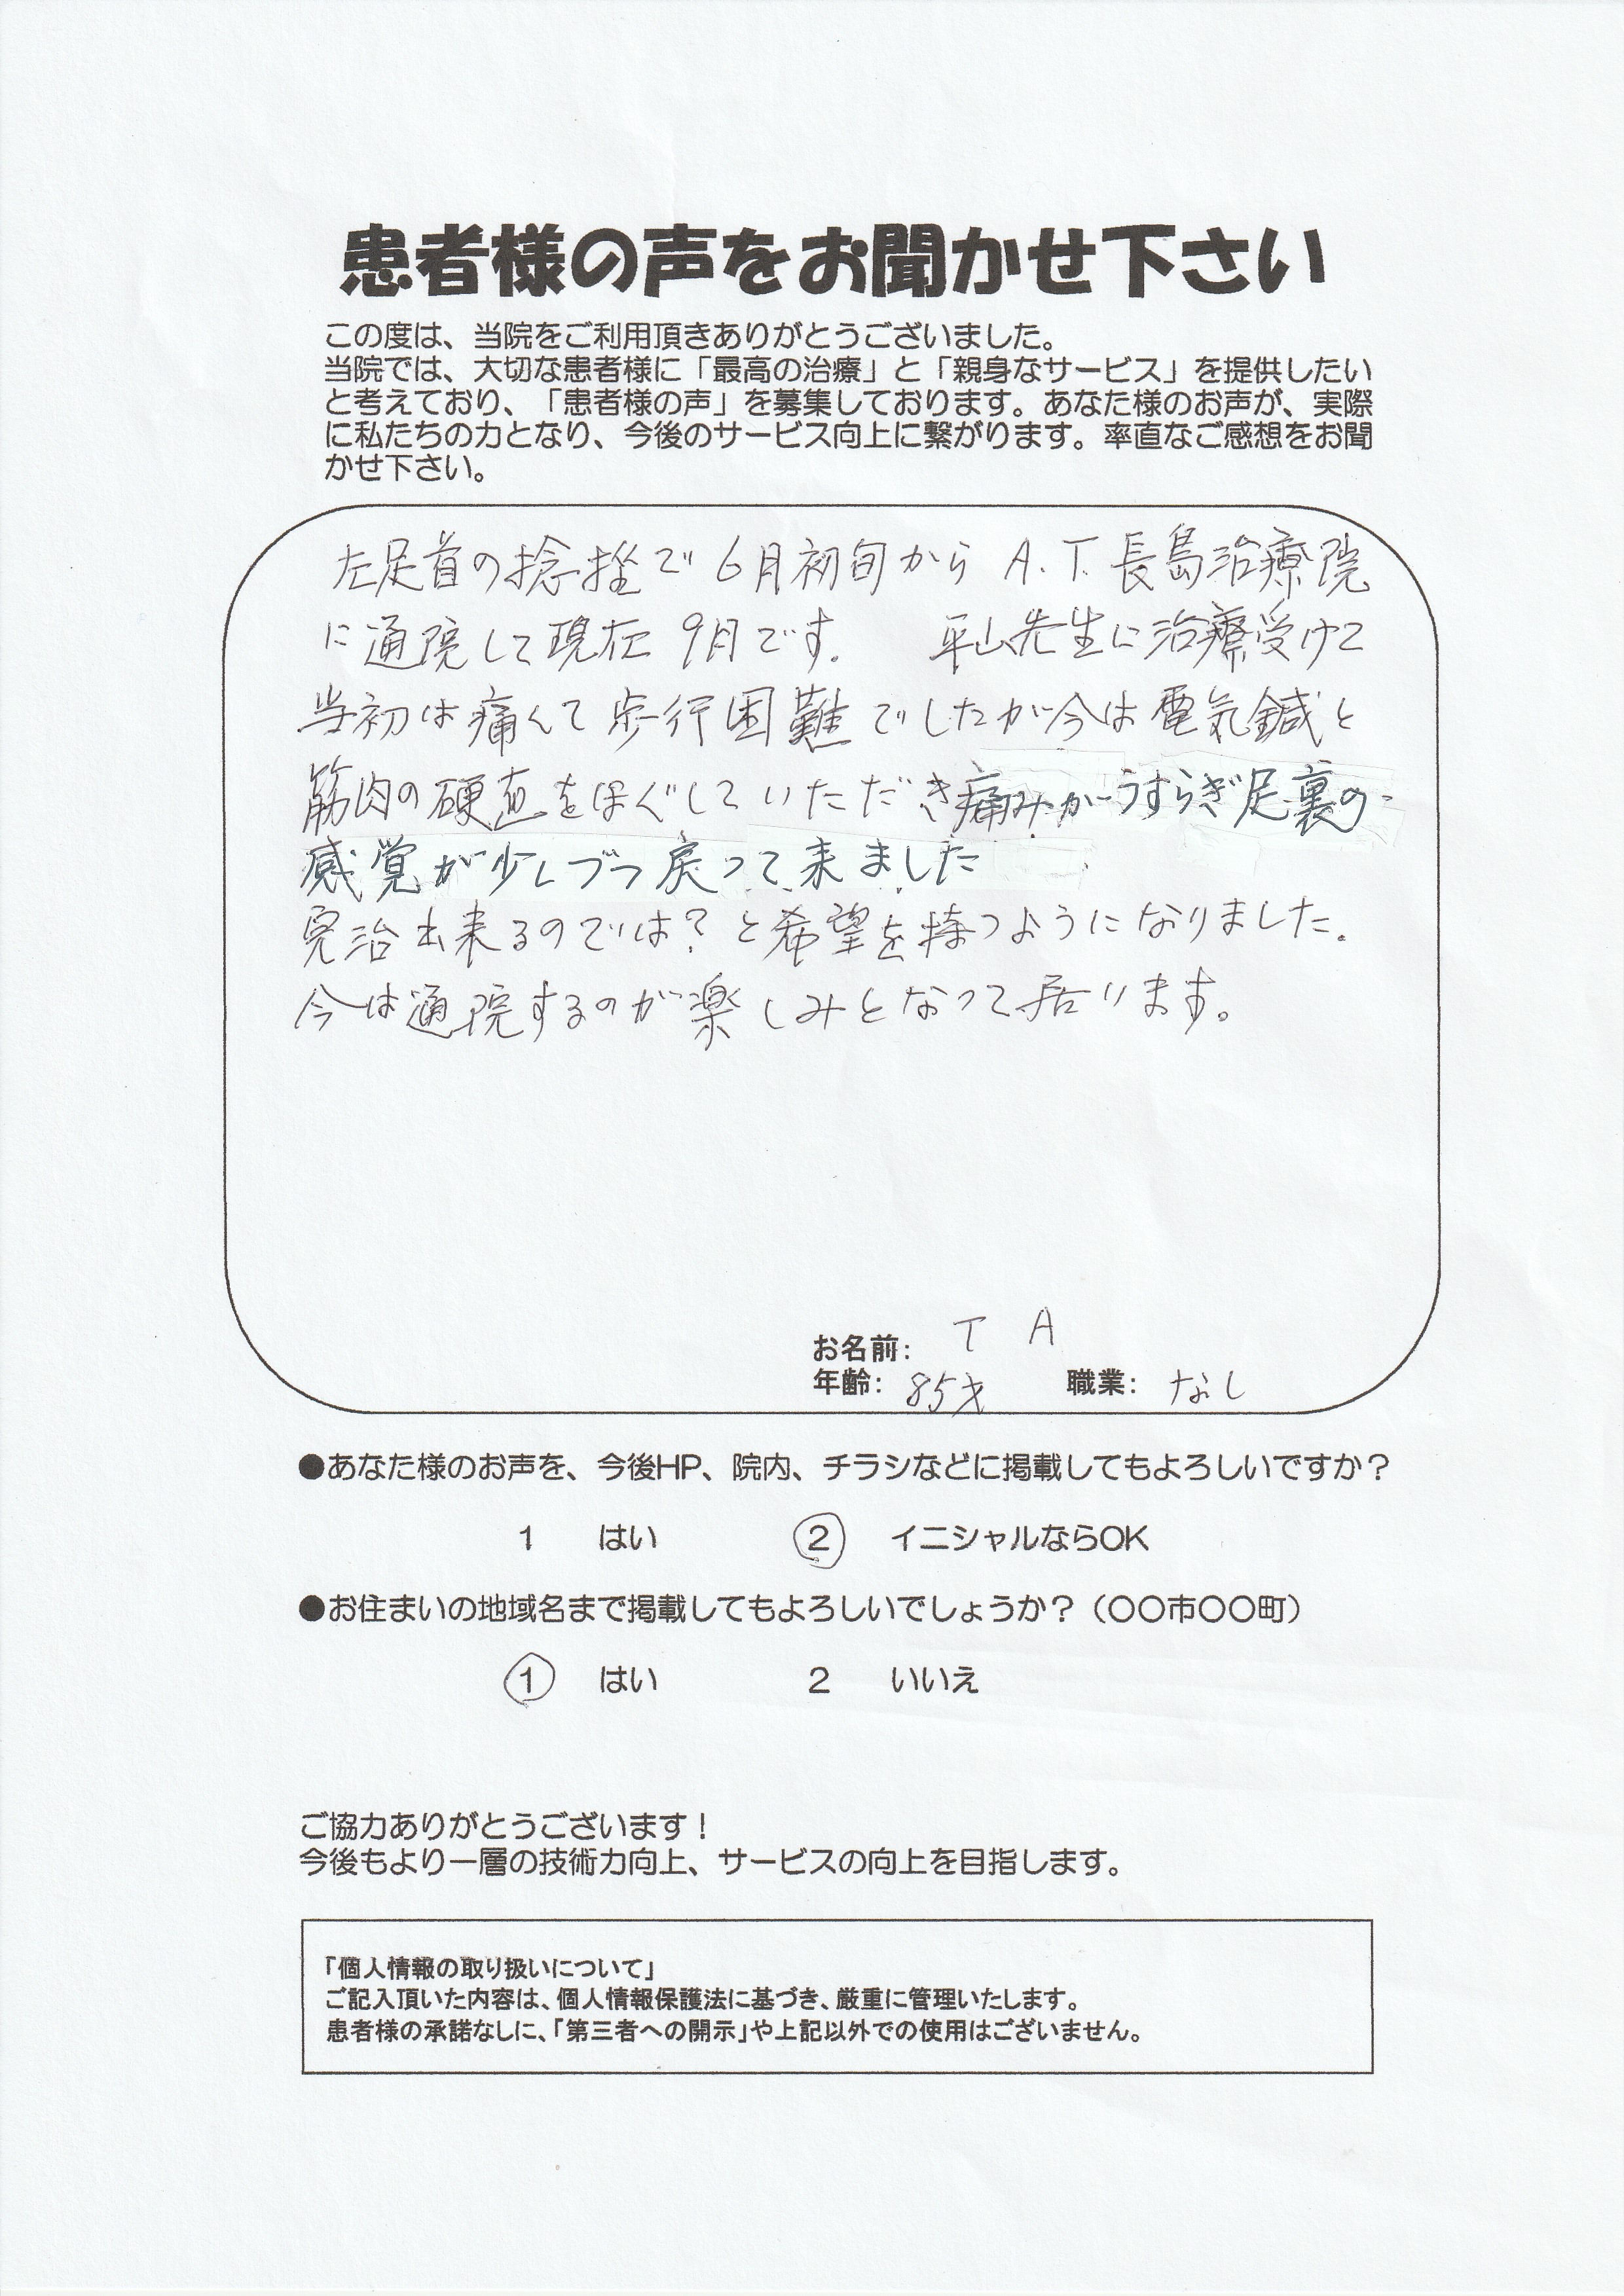 患者様の声をお聞かせ下さい
この度は、当院をご利用頂きありがとうございました。
当院では、大切な患者様に「最高の治療」と「親身なサービス」を提供したい
と考えており、「患者様の声」を募集しております。あなた様のお声が、実際
に私たちの力となり、今後のサービス向上に繋がります。率直なご感想をお聞
かせ下さい。
左足首の捻挫で6月初旬から A.T.長島治療院
に通院して現在 9月です。 平山先生に治療受けて
当初は痛くて歩行困難でしたが今は電気鍼と
筋肉の硬直をほぐしていただき痛みがうすらぎ足裏の
感覚が少しづつ戻って来ました
完治出来るのでは?と希望を持つようになりました.
今は通院するのが楽しみとなって居ります。
お名前: T A
年齢: 85才 職業: なし
●あなた様のお声を、今後HP、院内、チラシなどに掲載してもよろしいですか?
1 はい 2 イニシャルならOK
●お住まいの地域名まで掲載してもよろしいでしょうか?(〇〇市〇〇町)
1 はい 2 いいえ
ご協力ありがとうございます!
今後もより一層の技術力向上、サービスの向上を目指します。
「個人情報の取り扱いについて」
ご記入頂いた内容は、個人情報保護法に基づき、厳重に管理いたします。
患者様の承諾なしに、「第三者への開示」や上記以外での使用はございません。